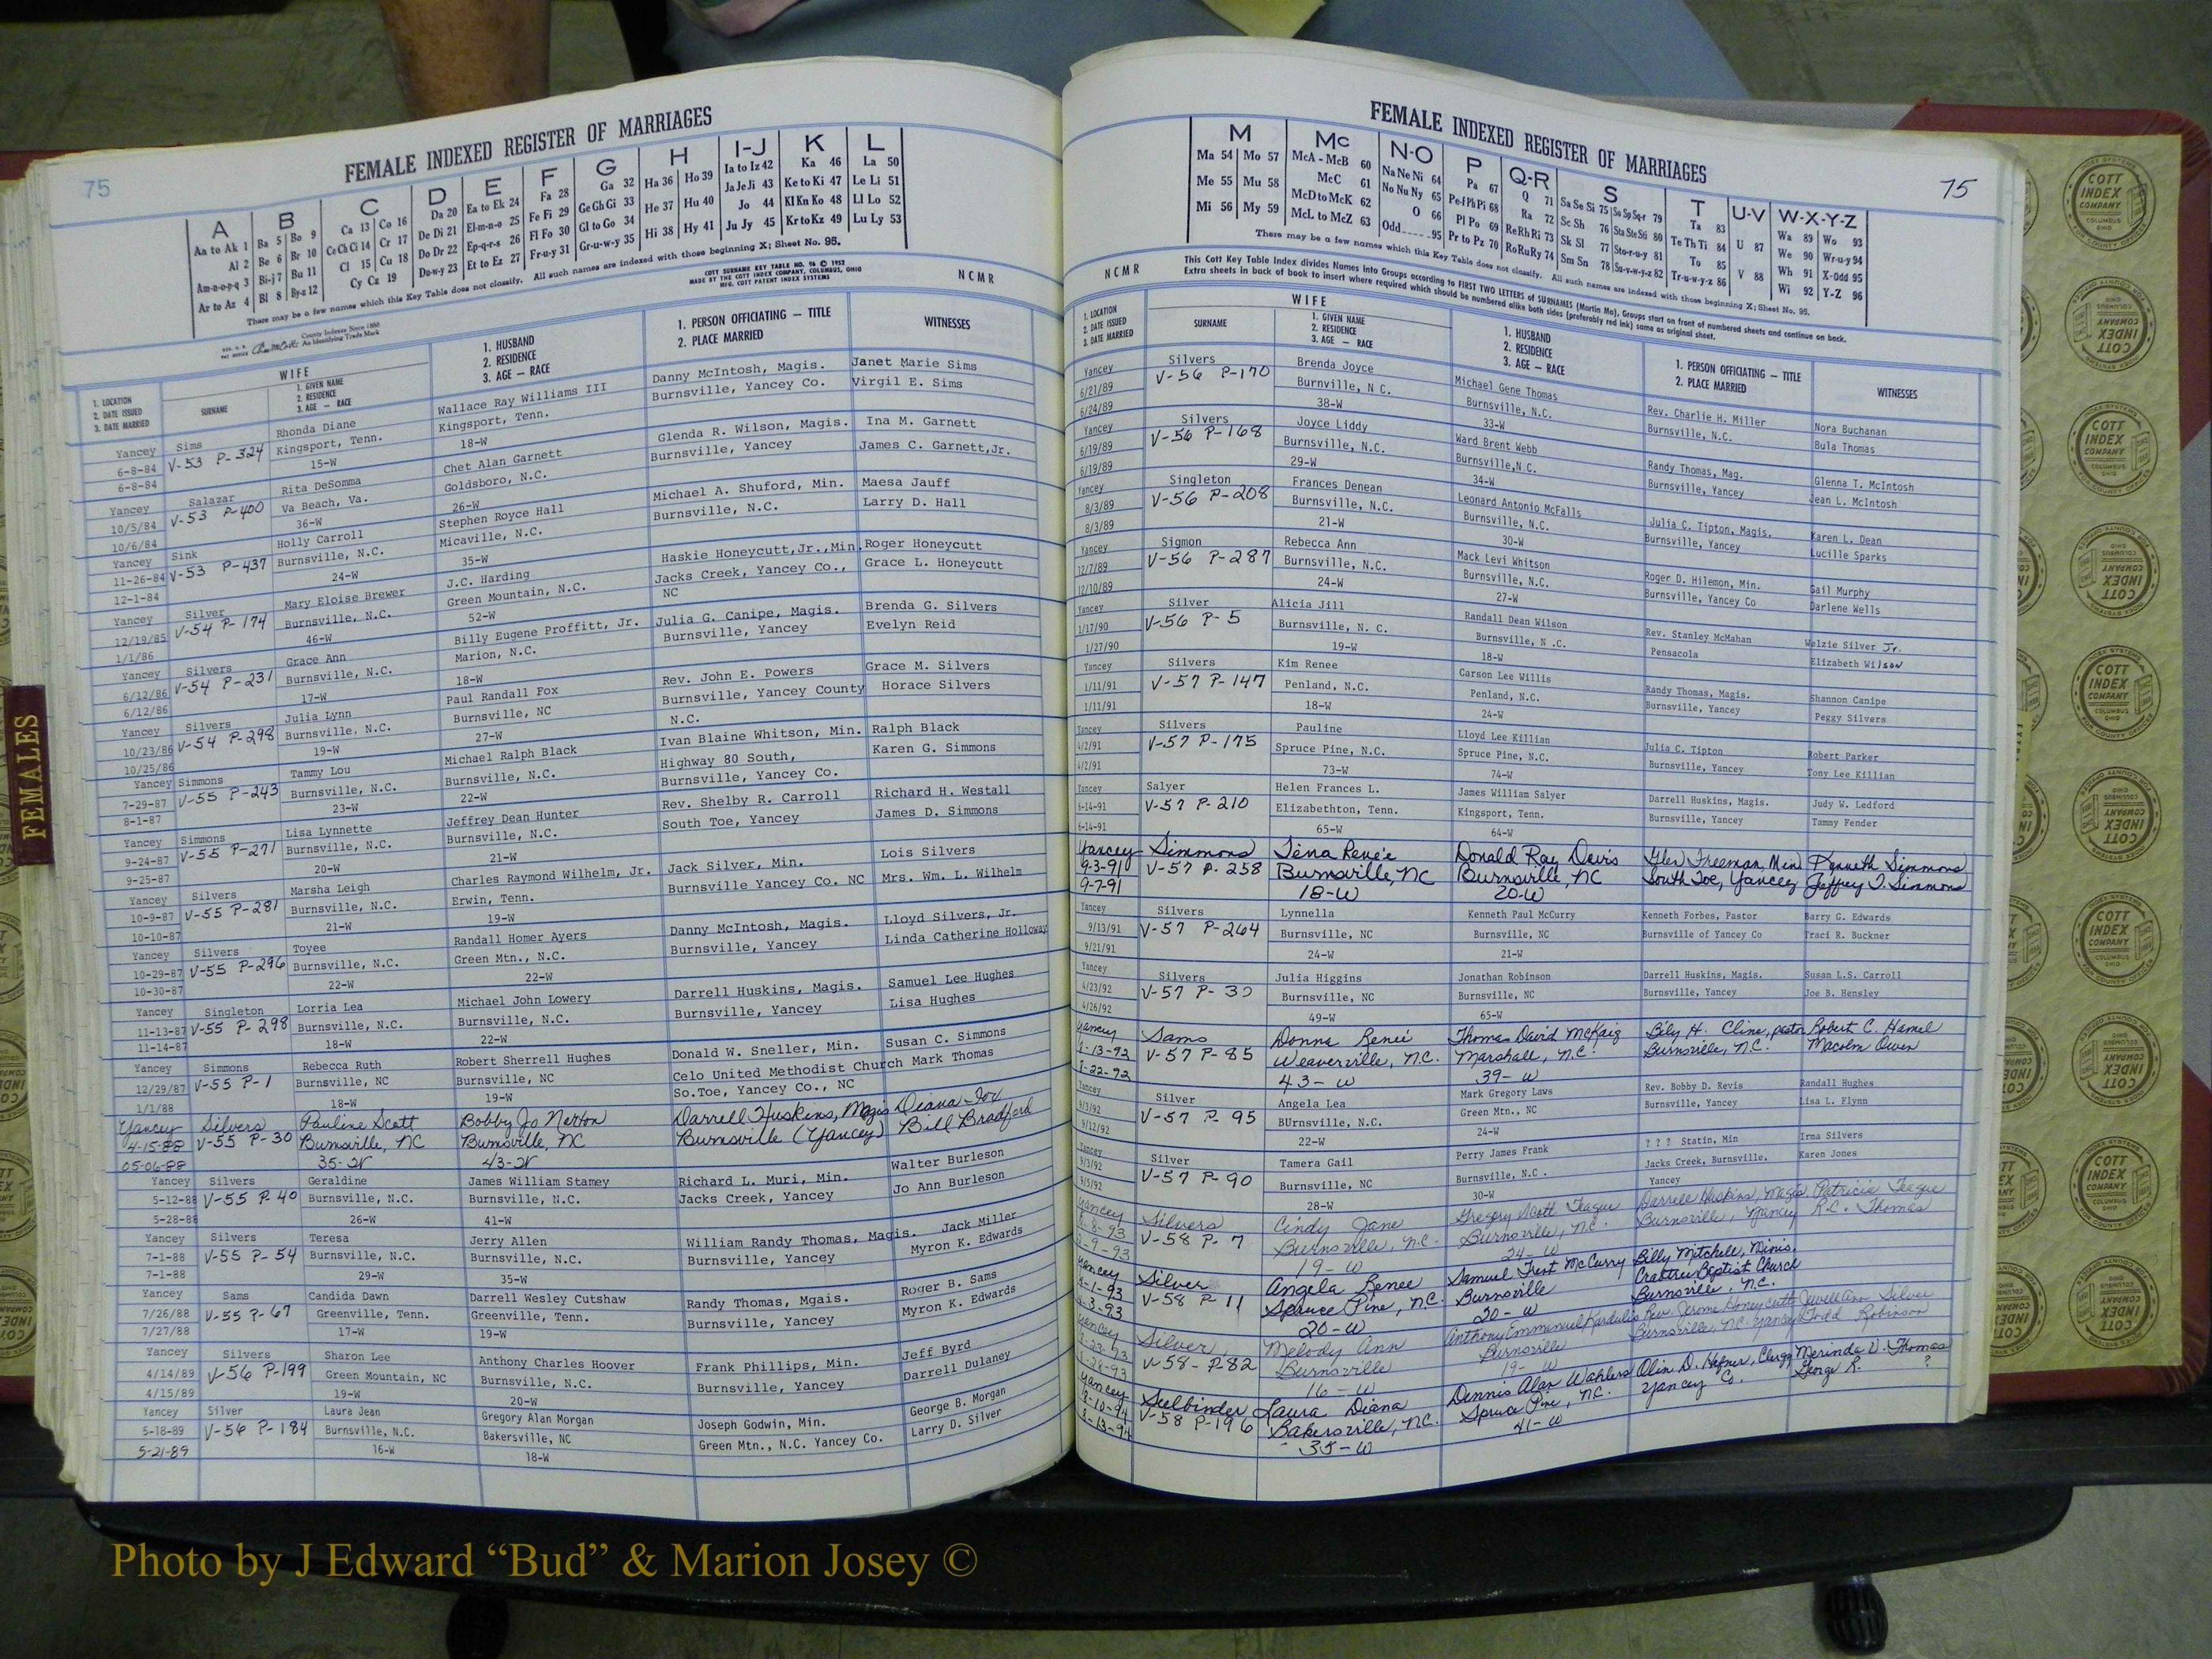 75
FEMALE INDEXED REGISTER OF MARRIAGES
A B C D E F G H I-J K L
Aa to Ak 1 Ba 5 Bo 9 Ca 13 Co 16 Da 20 Ea to Ek 24 Fa 28 Ga 32 Ha 36 Ho 39 Ia to Iz 42 Ka 46 La 50
Al 2 Be 6 Br 10 Ce Ch Ci 14 Cr 17 De Di 21 El-m-n-o 25 Fe Fi 29 Ge Gh Gi 33 He 37 Hu 40 Ja Je Ji 43 Ke to Ki 47 Le Li 51
Am-n-o-p-q 3 Bi-j 7 Bu 11 Cl 15 Cu 18 Do Dr 22 Ep-q-r-s 26 Fl Fo 30 Gl to Go 34 Hi 38 Hy 41 Jo 44 Kl Kn Ko 48 Ll Lo 52
Ar to Az 4 Bl 8 By-z 12 Cy Cz 19 Du-w-y 23 Et to Ez 27 Fr-u-y 31 Gr-u-w-y 35 Ju Jy 45 Kr to Kz 49 Lu Ly 53
There may be a few names which this Key Table does not classify. All such names are indexed with those beginning X; Sheet No. 95.
COTT SURNAME KEY TABLE NO. 96 © 1952
MADE BY THE COTT INDEX COMPANY, COLUMBUS, OHIO
MFG. COTT PATENT INDEX SYSTEMS
NCMR
County Indexes Since 1888
An Identifying Trade Mark
1. LOCATION
2. DATE ISSUED
3. DATE MARRIED
WIFE
SURNAME
1. GIVEN NAME
2. RESIDENCE
3. AGE — RACE
1. HUSBAND
2. RESIDENCE
3. AGE — RACE
1. PERSON OFFICIATING — TITLE
2. PLACE MARRIED
WITNESSES
Yancey Sims Rhonda Diane Wallace Ray Williams III Danny McIntosh, Magis. Janet Marie Sims
6-8-84 V-53 P-324 Kingsport, Tenn. Kingsport, Tenn. Burnsville, Yancey Co. Virgil E. Sims
6-8-84 15-W 18-W
Yancey Salazar Rita DeSomma Chet Alan Garnett Glenda R. Wilson, Magis. Ina M. Garnett
10/5/84 V-53 P-400 Va Beach, Va. Goldsboro, N.C. Burnsville, Yancey James C. Garnett,Jr.
10/6/84 36-W 26-W
Yancey Sink Holly Carroll Stephen Royce Hall Michael A. Shuford, Min. Maesa Jauff
11-26-84 V-53 P-437 Burnsville, N.C. Micaville, N.C. Burnsville, N.C. Larry D. Hall
12-1-84 24-W 35-W
Yancey Silver Mary Eloise Brewer J.C. Harding Haskie Honeycutt,Jr.,Min. Roger Honeycutt
12/19/85 V-54 P-174 Burnsville, N.C. Green Mountain, N.C. Jacks Creek, Yancey Co., Grace L. Honeycutt
1/1/86 46-W 52-W NC
Yancey Silvers Grace Ann Billy Eugene Proffitt, Jr. Julia G. Canipe, Magis. Brenda G. Silvers
6/12/86 V-54 P-231 Burnsville, N.C. Marion, N.C. Burnsville, Yancey Evelyn Reid
6/12/86 17-W 18-W
Yancey Silvers Julia Lynn Paul Randall Fox Rev. John E. Powers Grace M. Silvers
10/23/86 V-54 P-298 Burnsville, N.C. Burnsville, NC Burnsville, Yancey County Horace Silvers
10/25/86 19-W 27-W N.C.
Yancey Simmons Tammy Lou Michael Ralph Black Ivan Blaine Whitson, Min. Ralph Black
7-29-87 V-55 P-243 Burnsville, N.C. Burnsville, N.C. Highway 80 South, Karen G. Simmons
8-1-87 23-W 22-W Burnsville, Yancey Co.
Yancey Simmons Lisa Lynnette Jeffrey Dean Hunter Rev. Shelby R. Carroll Richard H. Westall
9-24-87 V-55 P-271 Burnsville, N.C. Burnsville, N.C. South Toe, Yancey James D. Simmons
9-25-87 20-W 21-W
Yancey Silvers Marsha Leigh Charles Raymond Wilhelm, Jr. Jack Silver, Min. Lois Silvers
10-9-87 V-55 P-281 Burnsville, N.C. Erwin, Tenn. Burnsville Yancey Co. NC Mrs. Wm. L. Wilhelm
10-10-87 21-W 19-W
Yancey Silvers Toyee Randall Homer Ayers Danny McIntosh, Magis. Lloyd Silvers, Jr.
10-29-87 V-55 P-296 Burnsville, N.C. Green Mtn., N.C. Burnsville, Yancey Linda Catherine Holloway
10-30-87 22-W 22-W
Yancey Singleton Lorria Lea Michael John Lowery Darrell Huskins, Magis. Samuel Lee Hughes
11-13-87 V-55 P-298 Burnsville, N.C. Burnsville, N.C. Burnsville, Yancey Lisa Hughes
11-14-87 18-W 22-W
Yancey Simmons Rebecca Ruth Robert Sherrell Hughes Donald W. Sneller, Min. Susan C. Simmons
12/29/87 V-55 P-1 Burnsville, NC Burnsville, NC Celo United Methodist Church Mark Thomas
1/1/88 18-W 19-W So.Toe, Yancey Co., NC
Yancey Silvers Pauline Scott Bobby Jo Norton Darrell Huskins, Magis Diana Fox
4-15-88 V-55 P-30 Burnsville, NC Burnsville, NC Burnsville (Yancey) Bill Bradford
05-06-88 35-W 43-W
Yancey Silvers Geraldine James William Stamey Richard L. Muri, Min. Walter Burleson
5-12-88 V-55 P.40 Burnsville, N.C. Burnsville, N.C. Jacks Creek, Yancey Jo Ann Burleson
5-28-88 26-W 41-W
Yancey Silvers Teresa Jerry Allen William Randy Thomas, Magis. Jack Miller
7-1-88 V-55 P-54 Burnsville, N.C. Burnsville, N.C. Burnsville, Yancey Myron K. Edwards
7-1-88 29-W 35-W
Yancey Sams Candida Dawn Darrell Wesley Cutshaw Randy Thomas, Mgais. Roger B. Sams
7/26/88 V-55 P-67 Greenville, Tenn. Greenville, Tenn. Burnsville, Yancey Myron K. Edwards
7/27/88 17-W 19-W
Yancey Silvers Sharon Lee Anthony Charles Hoover Frank Phillips, Min. Jeff Byrd
4/14/89 V-56 P-199 Green Mountain, NC Burnsville, N.C. Burnsville, Yancey Darrell Dulaney
4/15/89 19-W 20-W
Yancey Silver Laura Jean Gregory Alan Morgan Joseph Godwin, Min. George B. Morgan
5-18-89 V-56 P-184 Burnsville, N.C. Bakersville, NC Green Mtn., N.C. Yancey Co. Larry D. Silver
5-21-89 16-W 18-W
FEMALES
FEMALE INDEXED REGISTER OF MARRIAGES
75
M Mc N-O P Q-R S T U-V W-X-Y-Z
Ma 54 Mo 57 McA - McB 60 Na Ne Ni 64 Pa 67 Q 71 Sa Se Si 75 So Sp Sq-r 79 Ta 83 Wa 89 Wo 93
Me 55 Mu 58 McC 61 No Nu Ny 65 Pe-f Ph Pi 68 Ra 72 Sc Sh 76 Sta Ste Sti 80 Te Th Ti 84 U 87 We 90 Wr-u-y 94
Mi 56 My 59 McD to McK 62 O 66 Pl Po 69 Re Rh Ri 73 Sk Sl 77 Sto-r-u-y 81 To 85 Wh 91 X-Odd 95
McL to McZ 63 Odd 95 Pr to Pz 70 Ro Ru Ry 74 Sm Sn 78 Su-v-w-y-z 82 Tr-u-w-y-z 86 V 88 Wi 92 Y-Z 96
There may be a few names which this Key Table does not classify. All such names are indexed with those beginning X; Sheet No. 95.
NCMR
This Cott Key Table Index divides Names into Groups according to FIRST TWO LETTERS of SURNAMES (Martin Ma), Groups start on front of numbered sheets and continue on back.
Extra sheets in back of book to insert where required which should be numbered alike both sides (preferably red ink) same as original sheet.
1. LOCATION
2. DATE ISSUED
3. DATE MARRIED
WIFE
SURNAME
1. GIVEN NAME
2. RESIDENCE
3. AGE - RACE
1. HUSBAND
2. RESIDENCE
3. AGE — RACE
1. PERSON OFFICIATING — TITLE
2. PLACE MARRIED
WITNESSES
Yancey Silvers Brenda Joyce Michael Gene Thomas Rev. Charlie H. Miller Nora Buchanan
6/21/89 V-56 P-170 Burnville, N C. Burnsville, N.C. Burnsville, N.C. Bula Thomas
6/24/89 38-W 33-W
Yancey Silvers Joyce Liddy Ward Brent Webb Randy Thomas, Mag. Glenna T. McIntosh
6/19/89 V-56 P-168 Burnsville, N.C. Burnsville,N.C. Burnsville, Yancey Jean L. McIntosh
6/19/89 29-W 34-W
Yancey Singleton Frances Denean Leonard Antonio McFalls Julia C. Tipton, Magis. Karen L. Dean
8/3/89 V-56 P-208 Burnsville, N.C. Burnsville, N.C. Burnsville, Yancey Lucille Sparks
8/3/89 21-W 30-W
Yancey Sigmon Rebecca Ann Mack Levi Whitson Roger D. Hilemon, Min. Gail Murphy
12/7/89 V-56 P-287 Burnsville, N.C. Burnsville, N.C. Burnsville, Yancey Co Darlene Wells
12/10/89 24-W 27-W
Yancey Silver Alicia Jill Randall Dean Wilson Rev. Stanley McMahan Welzie Silver Jr.
1/17/90 V-56 P-5 Burnsville, N. C. Burnsville, N .C. Pensacola Elizabeth Wilson
1/27/90 19-W 18-W
Yancey Silvers Kim Renee Carson Lee Willis Randy Thomas, Magis. Shannon Canipe
1/11/91 V-57 P-147 Penland, N.C. Penland, N.C. Burnsville, Yancey Peggy Silvers
1/11/91 18-W 24-W
Yancey Silvers Pauline Lloyd Lee Killian Julia C. Tipton Robert Parker
4/2/91 V-57 P-175 Spruce Pine, N.C. Spruce Pine, N.C. Burnsville, Yancey Tony Lee Killian
4/2/91 73-W 74-W
Yancey Salyer Helen Frances L. James William Salyer Darrell Huskins, Magis. Judy W. Ledford
6-14-91 V-57 P-210 Elizabethton, Tenn. Kingsport, Tenn. Burnsville, Yancey Tammy Fender
6-14-91 65-W 64-W
Yancey Simmons Tena Renée Donald Ray Davis Glen Freeman, Min Kenneth Simmons
9-3-91 V-57 P-258 Burnsville, NC Burnsville, NC South Toe, Yancey Jeffrey T. Simmons
9-7-91 18-W 20-W
Yancey Silvers Lynnella Kenneth Paul McCurry Kenneth Forbes, Pastor Barry G. Edwards
9/13/91 V-57 P-264 Burnsville, NC Burnsville, NC Burnsville of Yancey Co Traci R. Buckner
9/21/91 24-W 21-W
Yancey Silvers Julia Higgins Jonathan Robinson Darrell Huskins, Magis. Susan L.S. Carroll
4/23/92 V-57 P- Burnsville, NC Burnsville, NC Burnsville, Yancey Joe B. Hensley
4/26/92 49-W 65-W
Yancey Sams Donna Reneé Thomas David McKaig Bily H. Cline, pastor Robert C. Hamel
8-13-92 V-57 P-85 Weaverville, N.C. Marshall, N.C. Burnsville, N.C. Malcolm Owen
8-22-92 43-W 39-W
Yancey Silver Angela Lea Mark Gregory Laws Rev. Bobby D. Revis Randall Hughes
9/3/92 V-57 P. 95 BUrnsville, N.C. Green Mtn., NC Burnsville, Yancey Lisa L. Flynn
9/12/92 22-W 24-W
Yancey Silver Tamera Gail Perry James Frank ? ? ? Statin, Min Irma Silvers
9/3/92 V-57 P-90 Burnsville, NC Burnsville, N.C . Jacks Creek, Burnsville, Karen Jones
9/5/92 28-W 30-W Yancey
Yancey Silvers Cindy Jane Gregory Scott Teague Darrell Huskins, Magis. Patricia Teague
8-93 V-58 P-7 Burnsville, N.C. Burnsville, N.C. Burnsville, Yancey R.C. Thomas
9-93 19-W 24-W
Yancey Silver Angela Renee Samuel Trent McCurry Billy Mitchell, Minis.
1-93 V-58 P-11 Spruce Pine, N.C. Burnsville Crabtree Baptist Church
3-93 20-W 20-W Burnsville, N.C.
Yancey Silver, Melody Ann Anthony Emmanuel Kardulis Rev. Jerome Honeycutt Jewell Ann Silver
23-93 V-58-P82 Burnsville Burnsville Burnsville, NC Yancey Todd Robinson
28-93 16-W 19-W
Yancey Seelbinder Laura Diana Dennis Alan Wahlers Olin D. Hefner, Clergy Merinda V. Thomas
8-10-94 V-58 P-196 Bakersville, N.C. Spruce Pine, N.C. Yancey Co. George R. ?
8-13-94 35-W 41-W
COTT INDEX COMPANY
COLUMBUS OHIO
Photo by J Edward “Bud” & Marion Josey ©